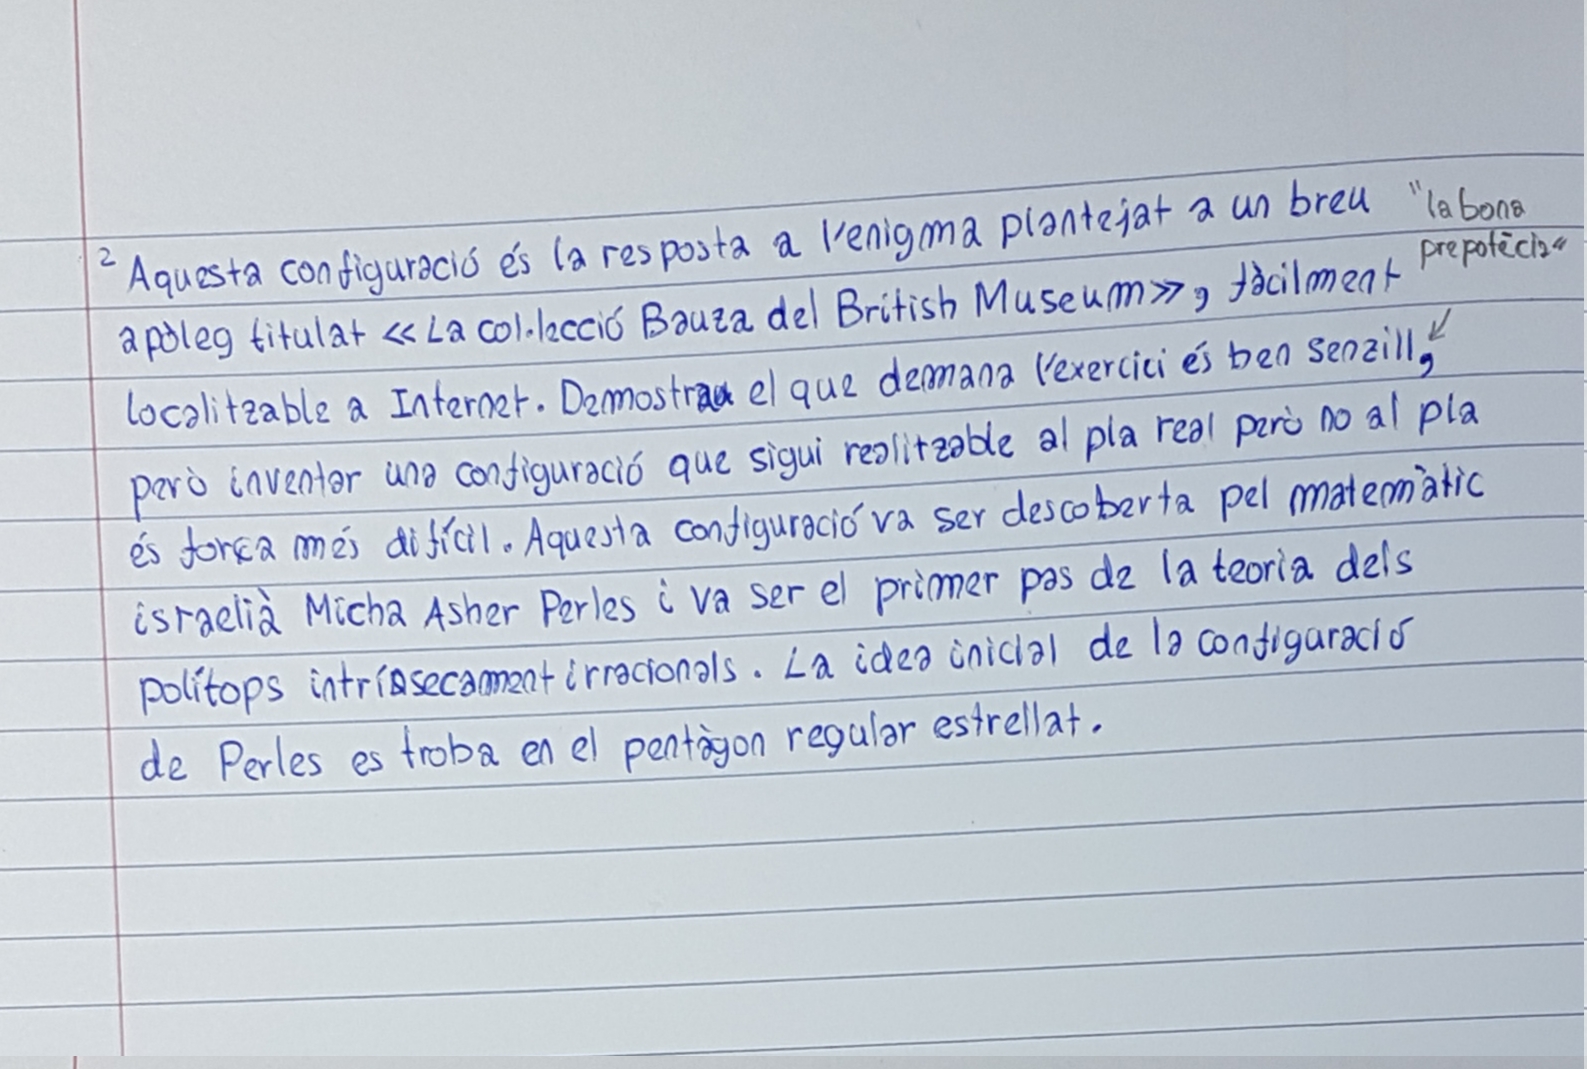 ² Aquesta configuració és la resposta a l'enigma plantejat a un breu
"la bona
prepotècia"
apòleg titulat «La col·lecció Bauza del British Museum», fàcilment
localitzable a Internet. Demostrau el que demana l'exercici és ben senzill,
però inventar una configuració que sigui realitzable al pla real però no al pla
és força més difícil. Aquesta configuració va ser descoberta pel matemàtic
israelià Micha Asher Perles i va ser el primer pas de la teoria dels
polítops intrínsecament irracionals. La idea inicial de la configuració
de Perles es troba en el pentàgon regular estrellat.